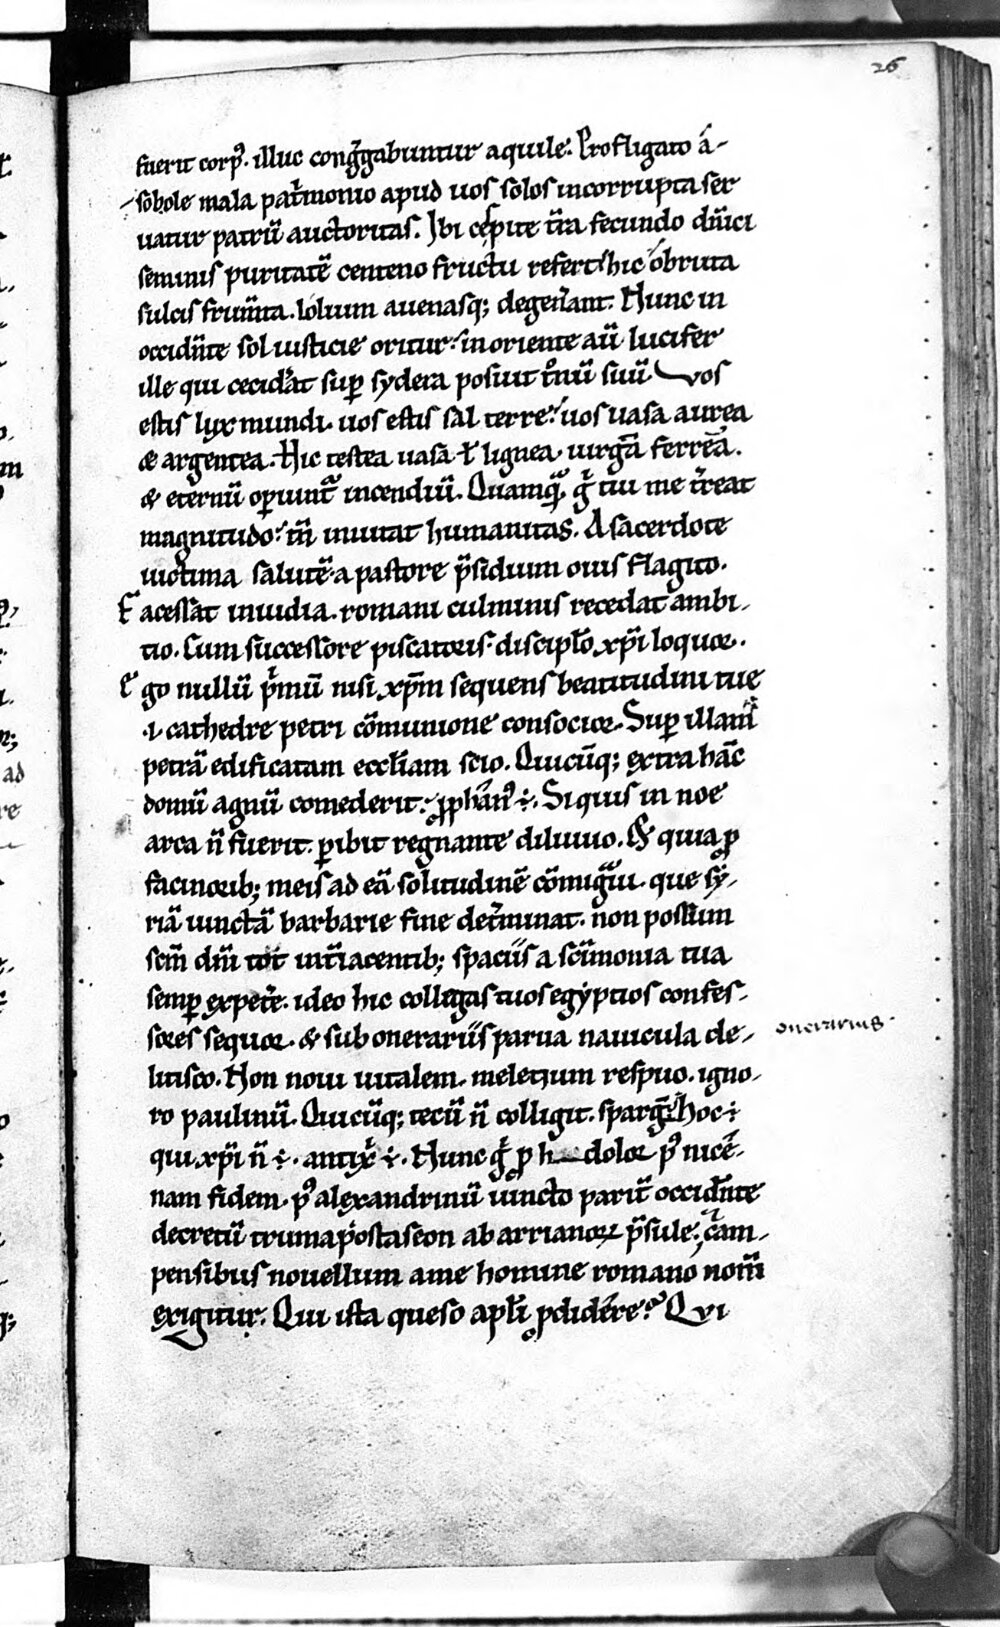 26
fuerit corpꝰ. illuc congͥgabuntur aquile. Profligato á-
sobole mala patͥmonio apud uos solos incorrupta ser
uatur patrū auctoritas. Ibi cespite tr̄a fecundo dn̄ici
seminis puritatē centeno fructu refert hic obruta
sulcis frum̄ta. lolium auenasq; degen̄ant. Nunc in
occidn̄te sol iusticie oritur. in oriente aū lucifer
ille qui cecid̄at suꝑ sydera posiuit tͦnū suū. Vos
estis lyx mundi. uos estis sal terre. uos uasa aurea
& argentea. Hic testea uasa ł lignea. uirgā ferrēa.
& eternū oꝑiunt̄ incendiū. Quamqᷓ gͥ tui me tr̄reat
magnitudo. tn̄ inuitat humanitas. A sacerdote
uictima salutē. a pastore p̄sidium ouis flagito.
Facessat inuidia. romani culminis recedat ambi-
tio. Cum successore piscatoris. discipło xp̄i loquor.
Ego nullū pͥmū nisi xp̄m sequens beatitudini tue
.i. cathedre petri cōmunione consocior. Suꝑ illam
petrā edificatam eccłiam scio. Quicūq; extra hāc
domū agnū comederit. ꝓphānꝰ ÷. Si quis in noe
arca n̄ fuerit. ꝑibit regnante diluuio. & quia ꝓ
facinorib; meis ad eā solitudinē cōmigᷓui. que sy-
riā iunctā barbarie fine det̄minat. non possum
scm̄ dn̄i tot int̄iacentib; spaciis a scīmonia tua
semꝑ expet̄e. ideo hic collegas tuos egyptios confes-
sores sequor. & sub onerariis parua nauicula de-
onerarius.
litisco. Non noui uitalem. meletium respuo. igno-
ro paulinū. Quicūq; tecū n̄ colligit. spargͥ hoc ÷
qui xp̄i n̄ ÷. antix̄ ÷. Nunc gͥ ꝓ h dolor pꝰ nicē-
nam fidem. pꝰ alexandrinū iuncto parit̄ occidn̄te
decretū trium apostaseon ab arrianoꝝ p̄sule. cam-
pensibus nouellum a me homine romano nom̄
exigitur. Qui ista queso apłi ꝓdidēre? Qui